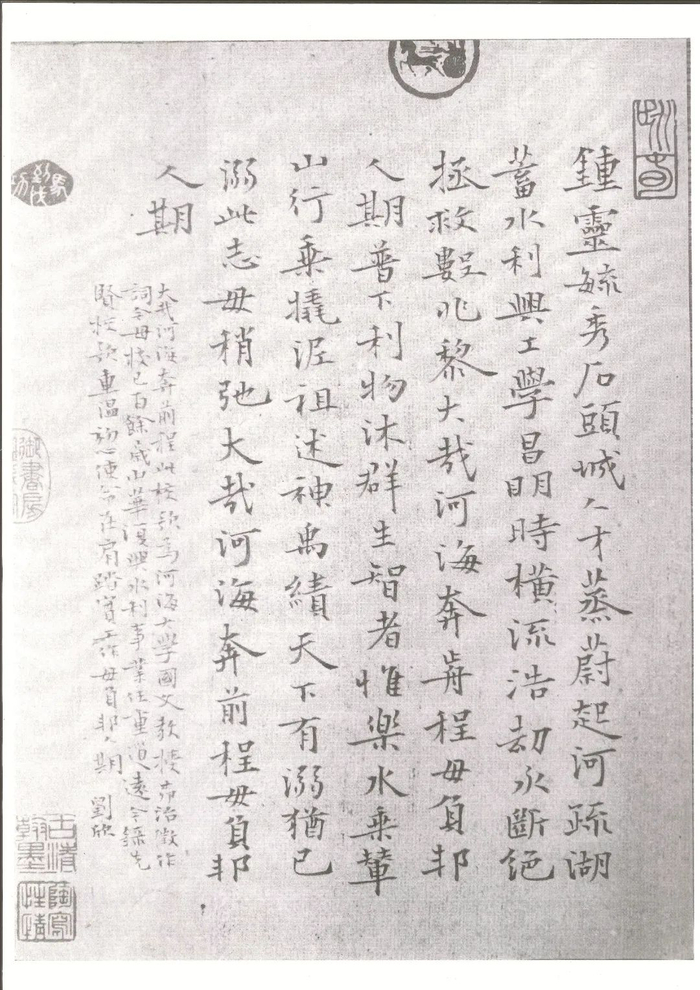 鍾靈毓秀石頭城人才蒸蔚起河疏湖
蓄水利興工學昌明時橫流浩劫永斷絕
拯救數兆黎大哉河海奔歬程毋負邦
人期普下利物沐群生智者惟樂水乘輦
山行乘橇泥祖述神禹績天下有溺猶已
溺此志毋稍弛大哉河海奔前程毋負邦
人期
大哉河海奔前程此校歌為河海大學國文教授治徵作
詞今母校已百餘歲中華復興水利事業任重道遠今錄先
賢校歌重溫初心使命在肩踏實工作毋負邦人期 劉欣
御書房
陶寫性情